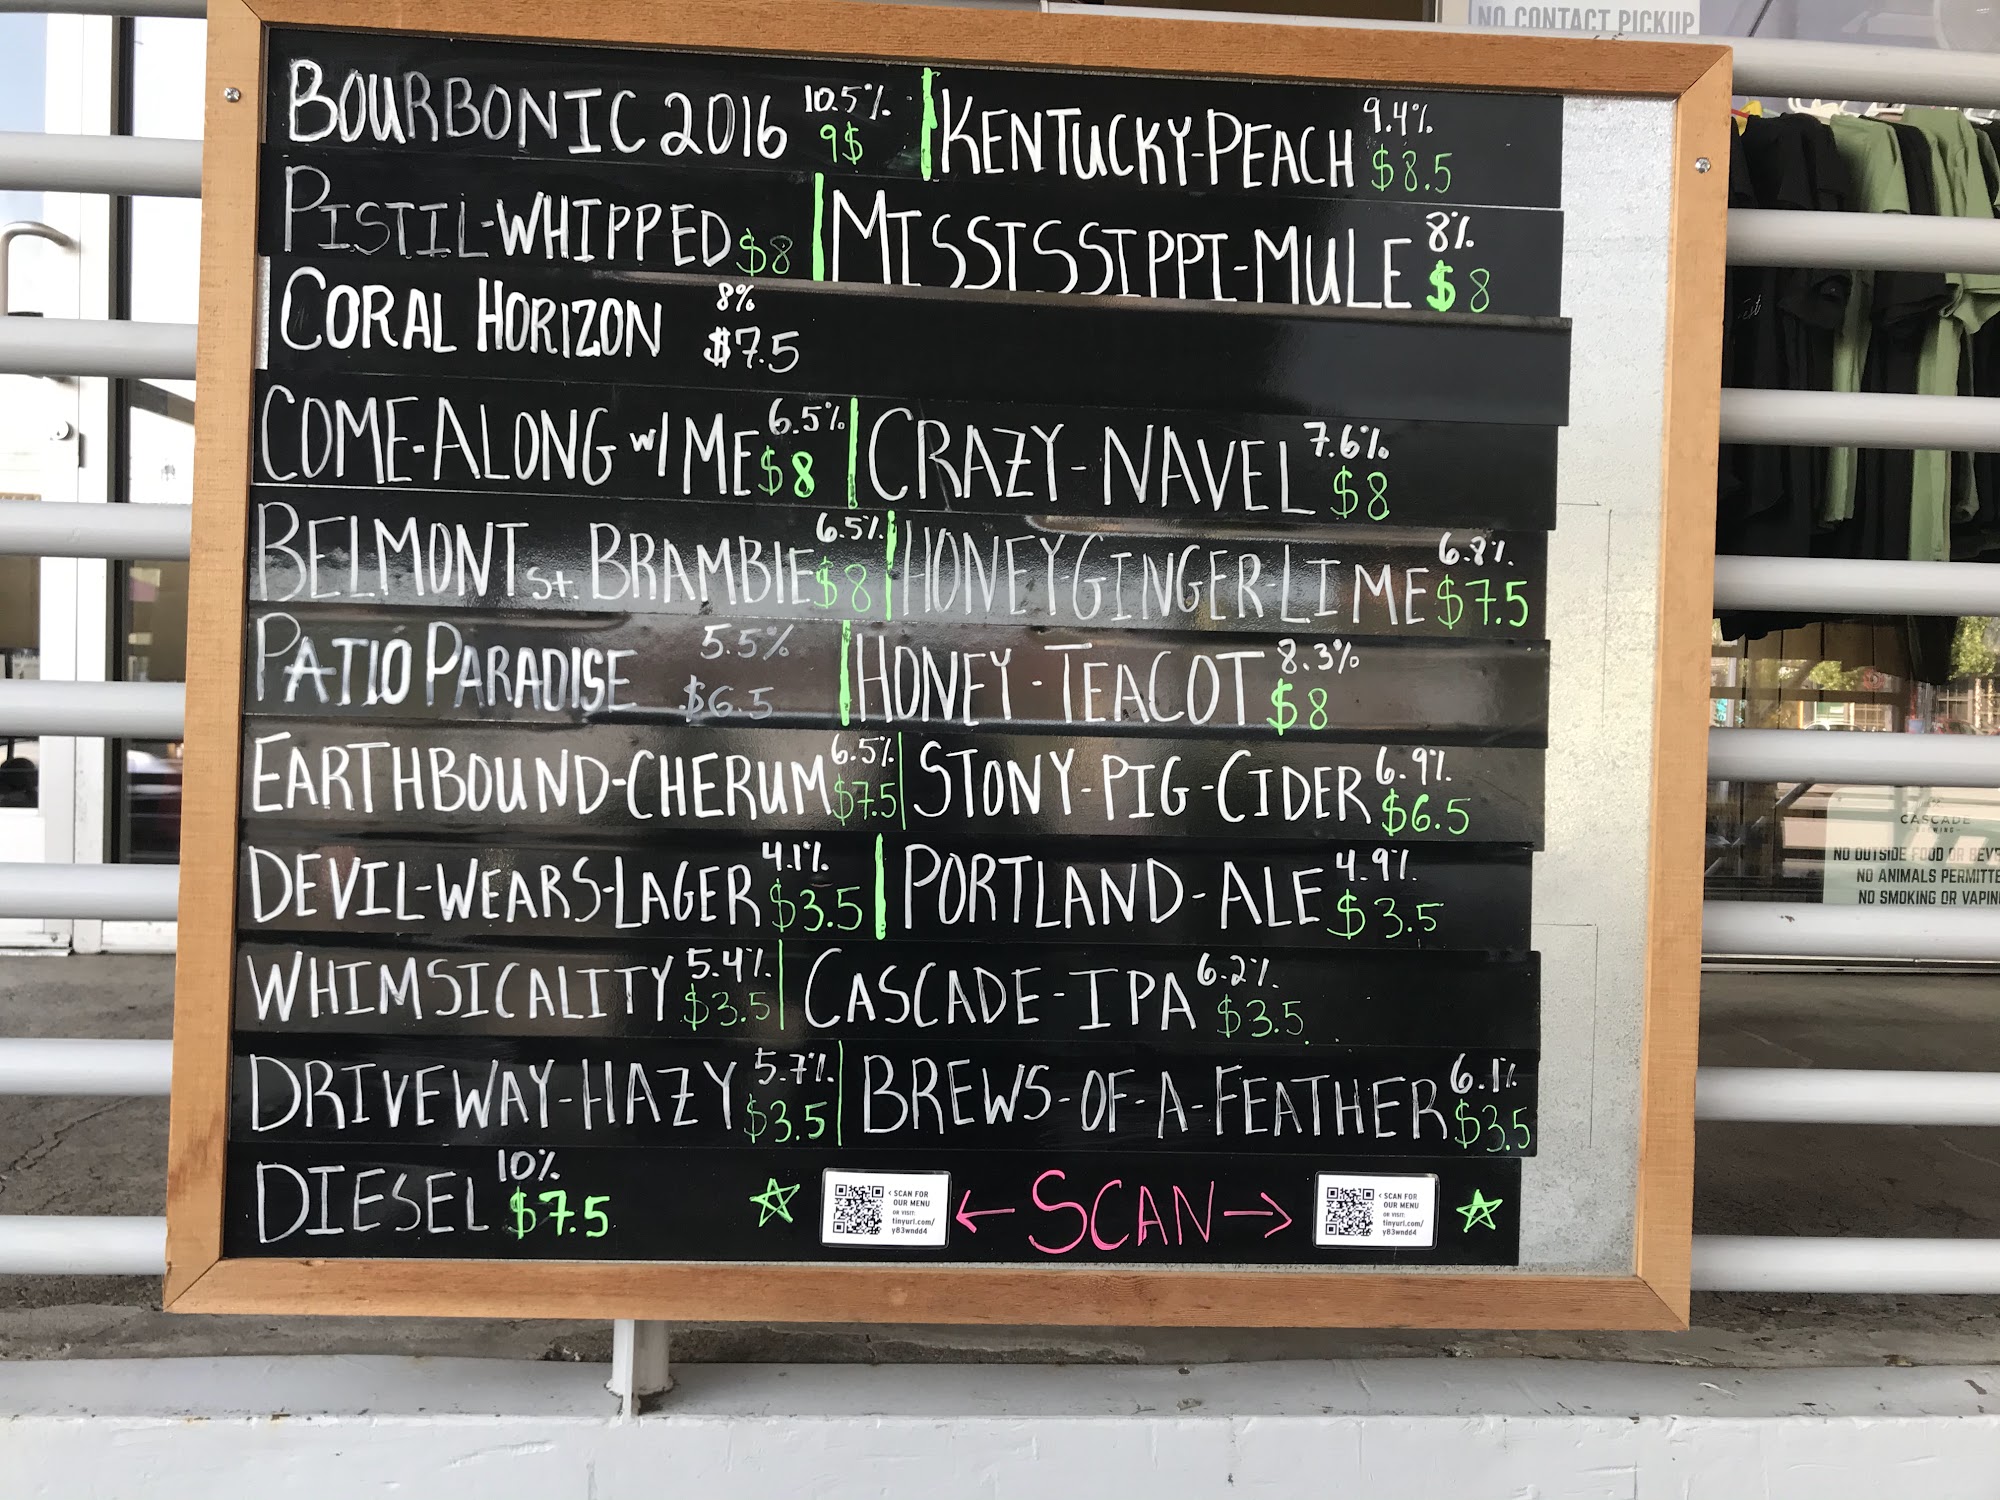 NO CONTACT PICKUP
BOURBONIC 2016 10.5% 9$ | KENTUCKY-PEACH 9.4% $8.5
PISTIL-WHIPPED $8 | MISSISSIPPI-MULE 8% $8
CORAL HORIZON 8% $7.5
COME-ALONG w/ ME 6.5% $8 | CRAZY-NAVEL 7.6% $8
BELMONT St. BRAMBlE 6.5% $8 | HONEY-GINGER-LIME 6.8% $7.5
PATIO PARADISE 5.5% $6.5 | HONEY-TEACOT 8.3% $8
EARTHBOUND-CHERUM 6.5% $7.5 | STONY-PIG-CIDER 6.9% $6.5
DEVIL-WEARS-LAGER 4.1% $3.5 | PORTLAND-ALE 4.9% $3.5
WHIMSICALITY 5.4% $3.5 | CASCADE-IPA 6.2% $3.5
DRIVEWAY-HAZY 5.7% $3.5 | BREWS-OF-A-FEATHER 6.1% $3.5
DIESEL 10% $7.5
< SCAN FOR
OUR MENU
OR VISIT:
tinyurl.com/
y83wndd4
← SCAN →
< SCAN FOR
OUR MENU
OR VISIT:
tinyurl.com/
y83wndd4
CASCADE
BREWING
NO OUTSIDE FOOD OR BEVE
NO ANIMALS PERMITTE
NO SMOKING OR VAPING